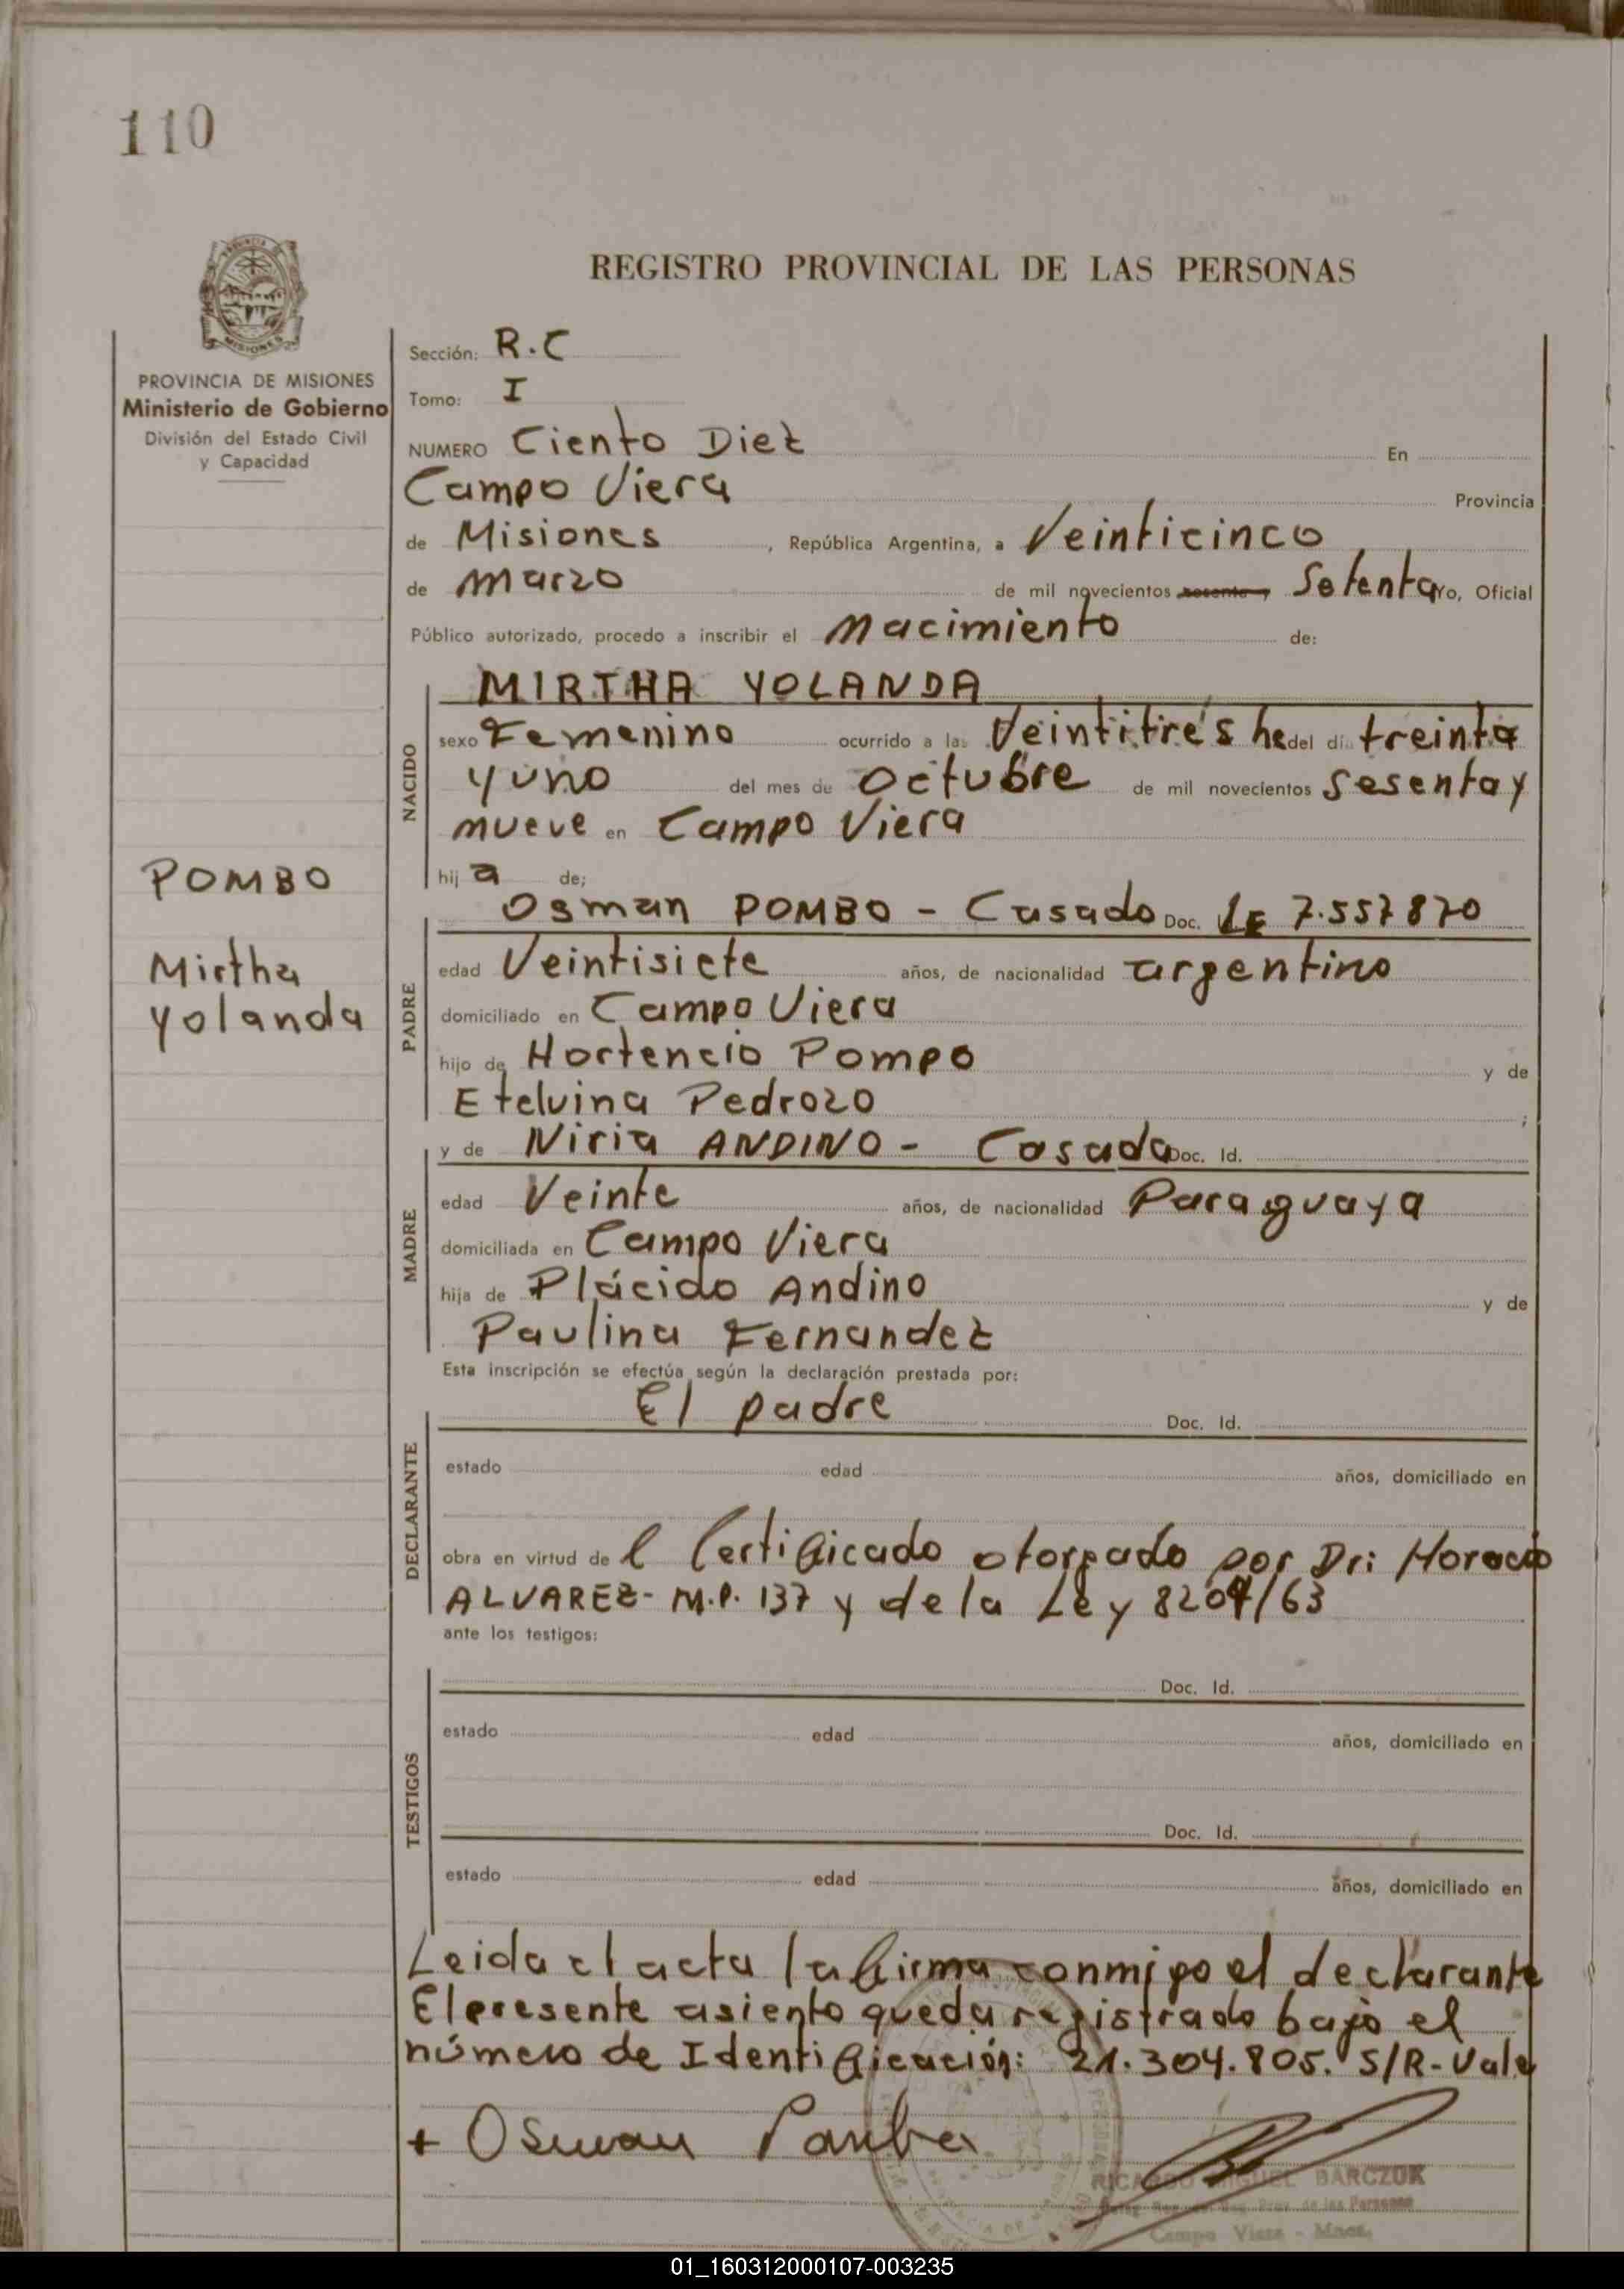 110
REGISTRO PROVINCIAL DE LAS PERSONAS
PROVINCIA DE MISIONES
Ministerio de Gobierno
División del Estado Civil
y Capacidad
Sección: R.C
Tomo: I
NUMERO Ciento Diez En
Campo Viera Provincia
de Misiones, República Argentina, a Veinticinco
de marzo de mil novecientos sesenta y Setenta Yo, Oficial
Público autorizado, procedo a inscribir el nacimiento de:
NACIDO
MIRTHA YOLANDA
sexo Femenino ocurrido a las Veintitrés hs del día treinta
y uno del mes de Octubre de mil novecientos Sesenta y
nueve en Campo Viera
hij a de;
POMBO
Mirtha
Yolanda
PADRE
Osman POMBO - Casado Doc. LE 7.557870
edad Veintisiete años, de nacionalidad argentino
domiciliado en Campo Viera
hijo de Hortencio Pompo y de
Etelvina Pedrozo ;
MADRE
y de Niria ANDINO - Casada Doc. Id.
edad Veinte años, de nacionalidad Paraguaya
domiciliada en Campo Viera
hija de Plácido Andino y de
Paulina Fernandez
Esta inscripción se efectúa según la declaración prestada por:
DECLARANTE
El padre Doc. Id.
estado edad años, domiciliado en
obra en virtud de l Certificado otorgado por Dr: Horacio
ALVAREZ- M.P. 137 y de la Ley 8204/63
ante los testigos:
TESTIGOS
Doc. Id.
estado edad años, domiciliado en
Doc. Id.
estado edad años, domiciliado en
Leida el acta la firma conmigo el declarante
El presente asiento queda registrado bajo el
número de Identificación: 21.304.805. S/R-Vale
+ Osman Pombo
RICARDO MIGUEL BARCZUK
Campo Viera - Mnes.
01_160312000107-003235